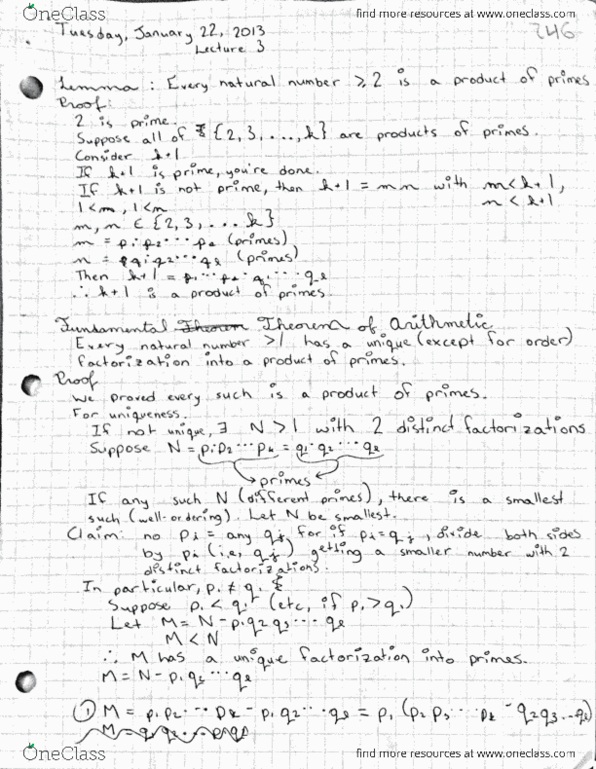 OneClass
find more resources at www.oneclass.com
246
Tuesday, January 22, 2013
Lecture 3
Lemma : Every natural number ≥ 2 is a product of primes
Proof:
2 is prime.
Suppose all of {2, 3, ..., k} are products of primes.
Consider k+1
If k+1 is prime, you're done.
If k+1 is not prime, then k+1 = mn with m<k+1,
1<m, 1<n n<k+1
m, n ∈ {2, 3, ... k}
m = p1·p2···pk (primes)
n = q1·q2···ql (primes)
Then k+1 = p1···pk·q1···ql
∴ k+1 is a product of primes
Fundamental Theorem of Arithmetic
Every natural number >1 has a unique (except for order)
factorization into a product of primes.
Proof
We proved every such is a product of primes.
For uniqueness.
If not unique, ∃ N>1 with 2 distinct factorizations
Suppose N = p1·p2···pk = q1·q2···ql
primes
If any such N (different primes), there is a smallest
such (well-ordering). Let N be smallest.
Claim: no pi = any qj, for if pi = qj, divide both sides
by pi (i.e, qj) getting a smaller number with 2
distinct factorizations.
In particular, p1 ≠ q1
Suppose p1 < q1 (etc, if p1 > q1)
Let M = N - p1q2q3···ql
M < N
∴ M has a unique factorization into primes.
M = N - p1q2···ql
① M = p1p2···pk - p1q2···ql = p1 (p2p3···pk - q2q3..ql)
OneClass
find more resources at www.oneclass.com